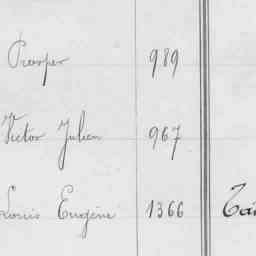 Prosper 989
Victor Julien 967
Louis Eugène 1366